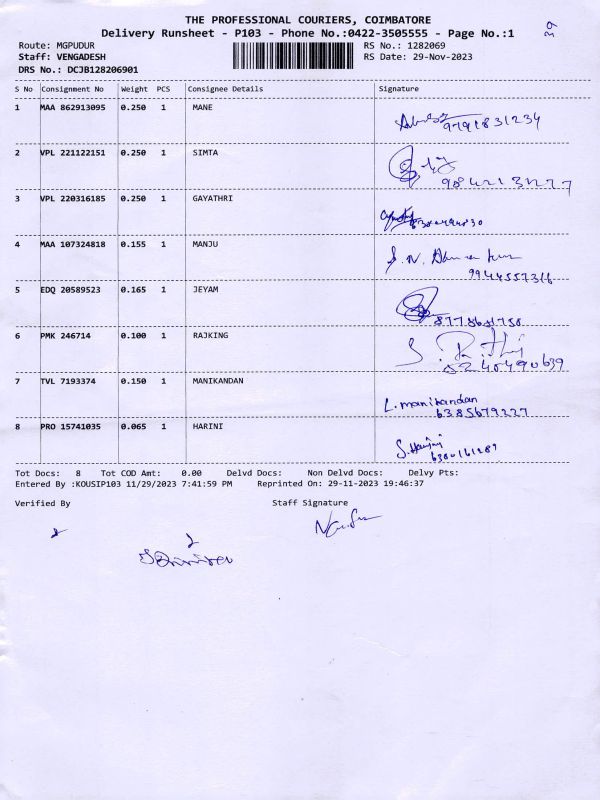 THE PROFESSIONAL COURIERS, COIMBATORE
Delivery Runsheet - P103 - Phone No.:0422-3505555 - Page No.:1
Route: MGPUDUR RS No.: 1282069
Staff: VENGADESH RS Date: 29-Nov-2023
DRS No.: DCJB128206901
S No Consignment No Weight PCS Consignee Details Signature
1 MAA 862913095 0.250 1 MANE
9791831234
2 VPL 221122151 0.250 1 SIMTA
3 VPL 220316185 0.250 1 GAYATHRI
4 MAA 107324818 0.155 1 MANJU
S. N.
9944557316
5 EDQ 20589523 0.165 1 JEYAM
6 PMK 246714 0.100 1 RAJKING
7 TVL 7193374 0.150 1 MANIKANDAN
L. manikandan
6385679227
8 PRO 15741035 0.065 1 HARINI
S. Harini
6380161289
Tot Docs: 8 Tot COD Amt: 0.00 Delvd Docs: Non Delvd Docs: Delvy Pts:
Entered By :KOUSIP103 11/29/2023 7:41:59 PM Reprinted On: 29-11-2023 19:46:37
Verified By Staff Signature